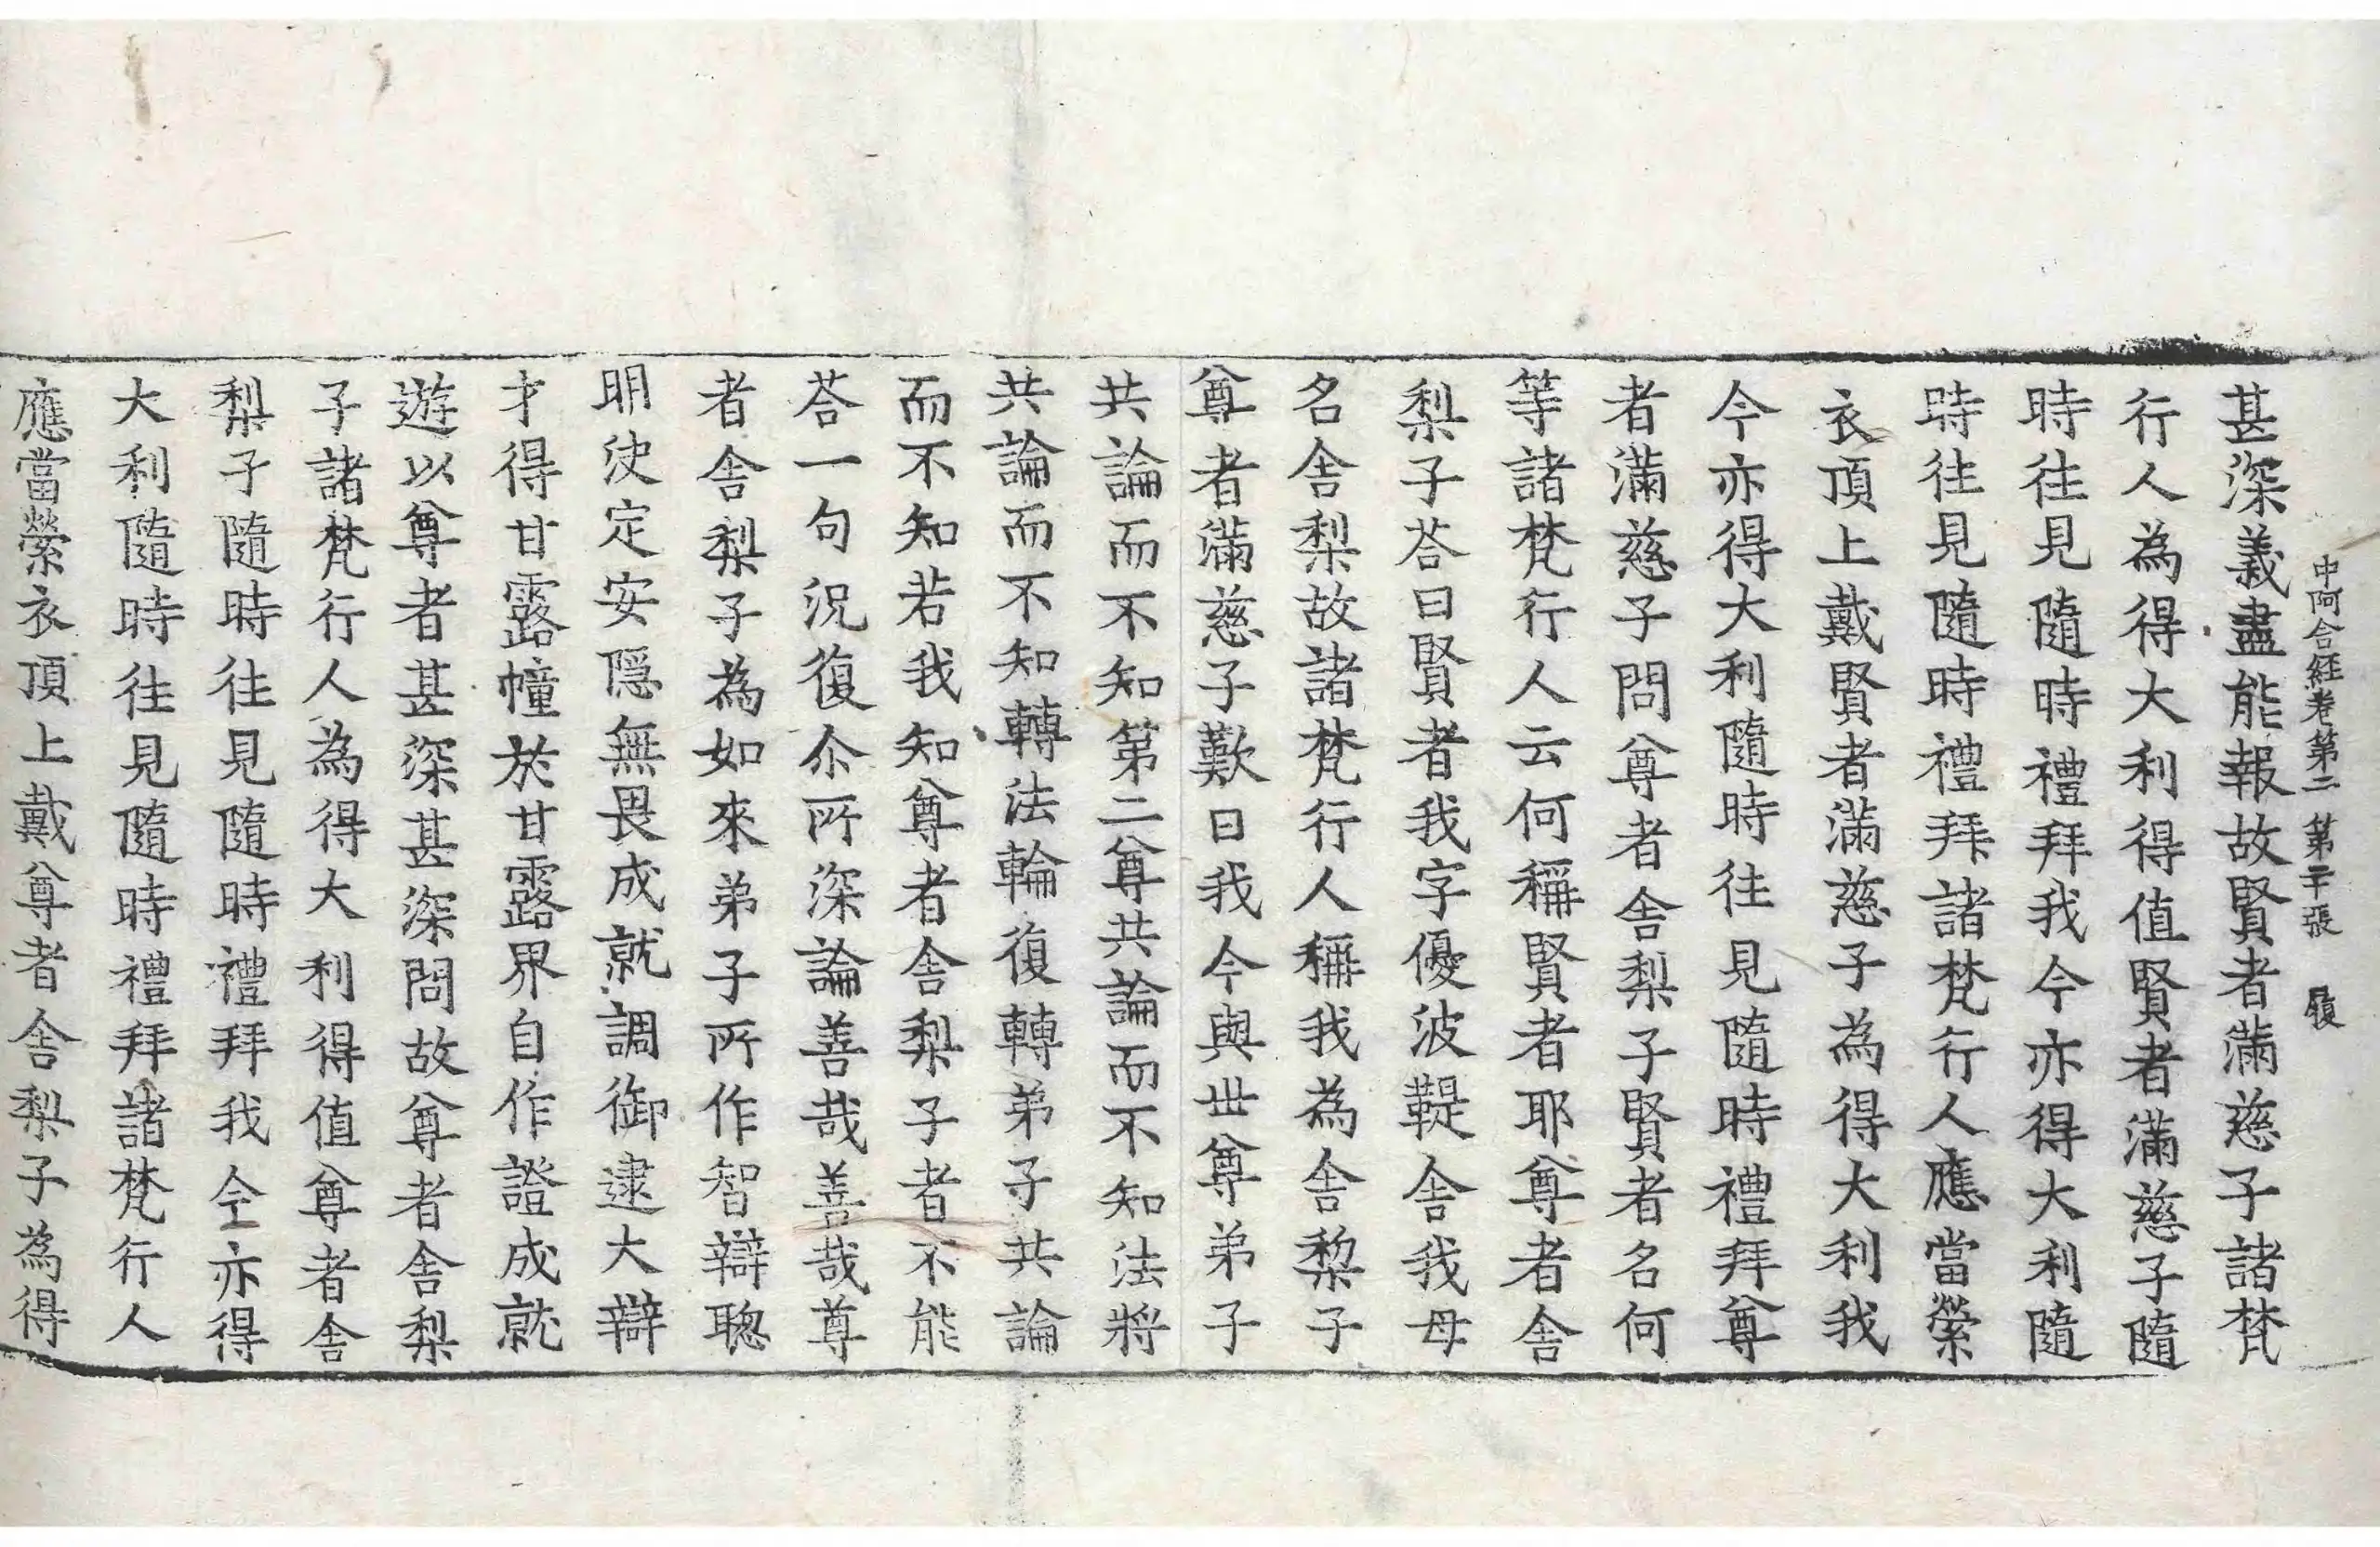 中阿含経卷第二 第二十張 履
甚深義盡能報故賢者滿慈子諸梵
行人為得大利得值賢者滿慈子隨
時往見隨時禮拜我今亦得大利隨
時往見隨時禮拜諸梵行人應當縈
衣頂上戴賢者滿慈子為得大利我
今亦得大利隨時往見隨時禮拜尊
者滿慈子問尊者舎梨子賢者名何
等諸梵行人云何稱賢者耶尊者舎
梨子荅曰賢者我字優波鞮舎我母
名舎梨故諸梵行人稱我為舎梨子
尊者滿慈子歎曰我今與世尊弟子
共論而不知第二尊共論而不知法將
共論而不知轉法輪復轉弟子共論
而不知若我知尊者舎梨子者不能
荅一句況復尒所深論善哉善哉尊
者舎梨子為如來弟子所作智辯聦
明決定安隠無畏成就調御逮大辯
才得甘露幢於甘露界自作證成就
遊以尊者甚深甚深問故尊者舎梨
子諸梵行人為得大利得值尊者舎
梨子隨時往見隨時禮拜我今亦得
大利隨時往見隨時禮拜諸梵行人
應當縈衣頂上戴尊者舎梨子為得